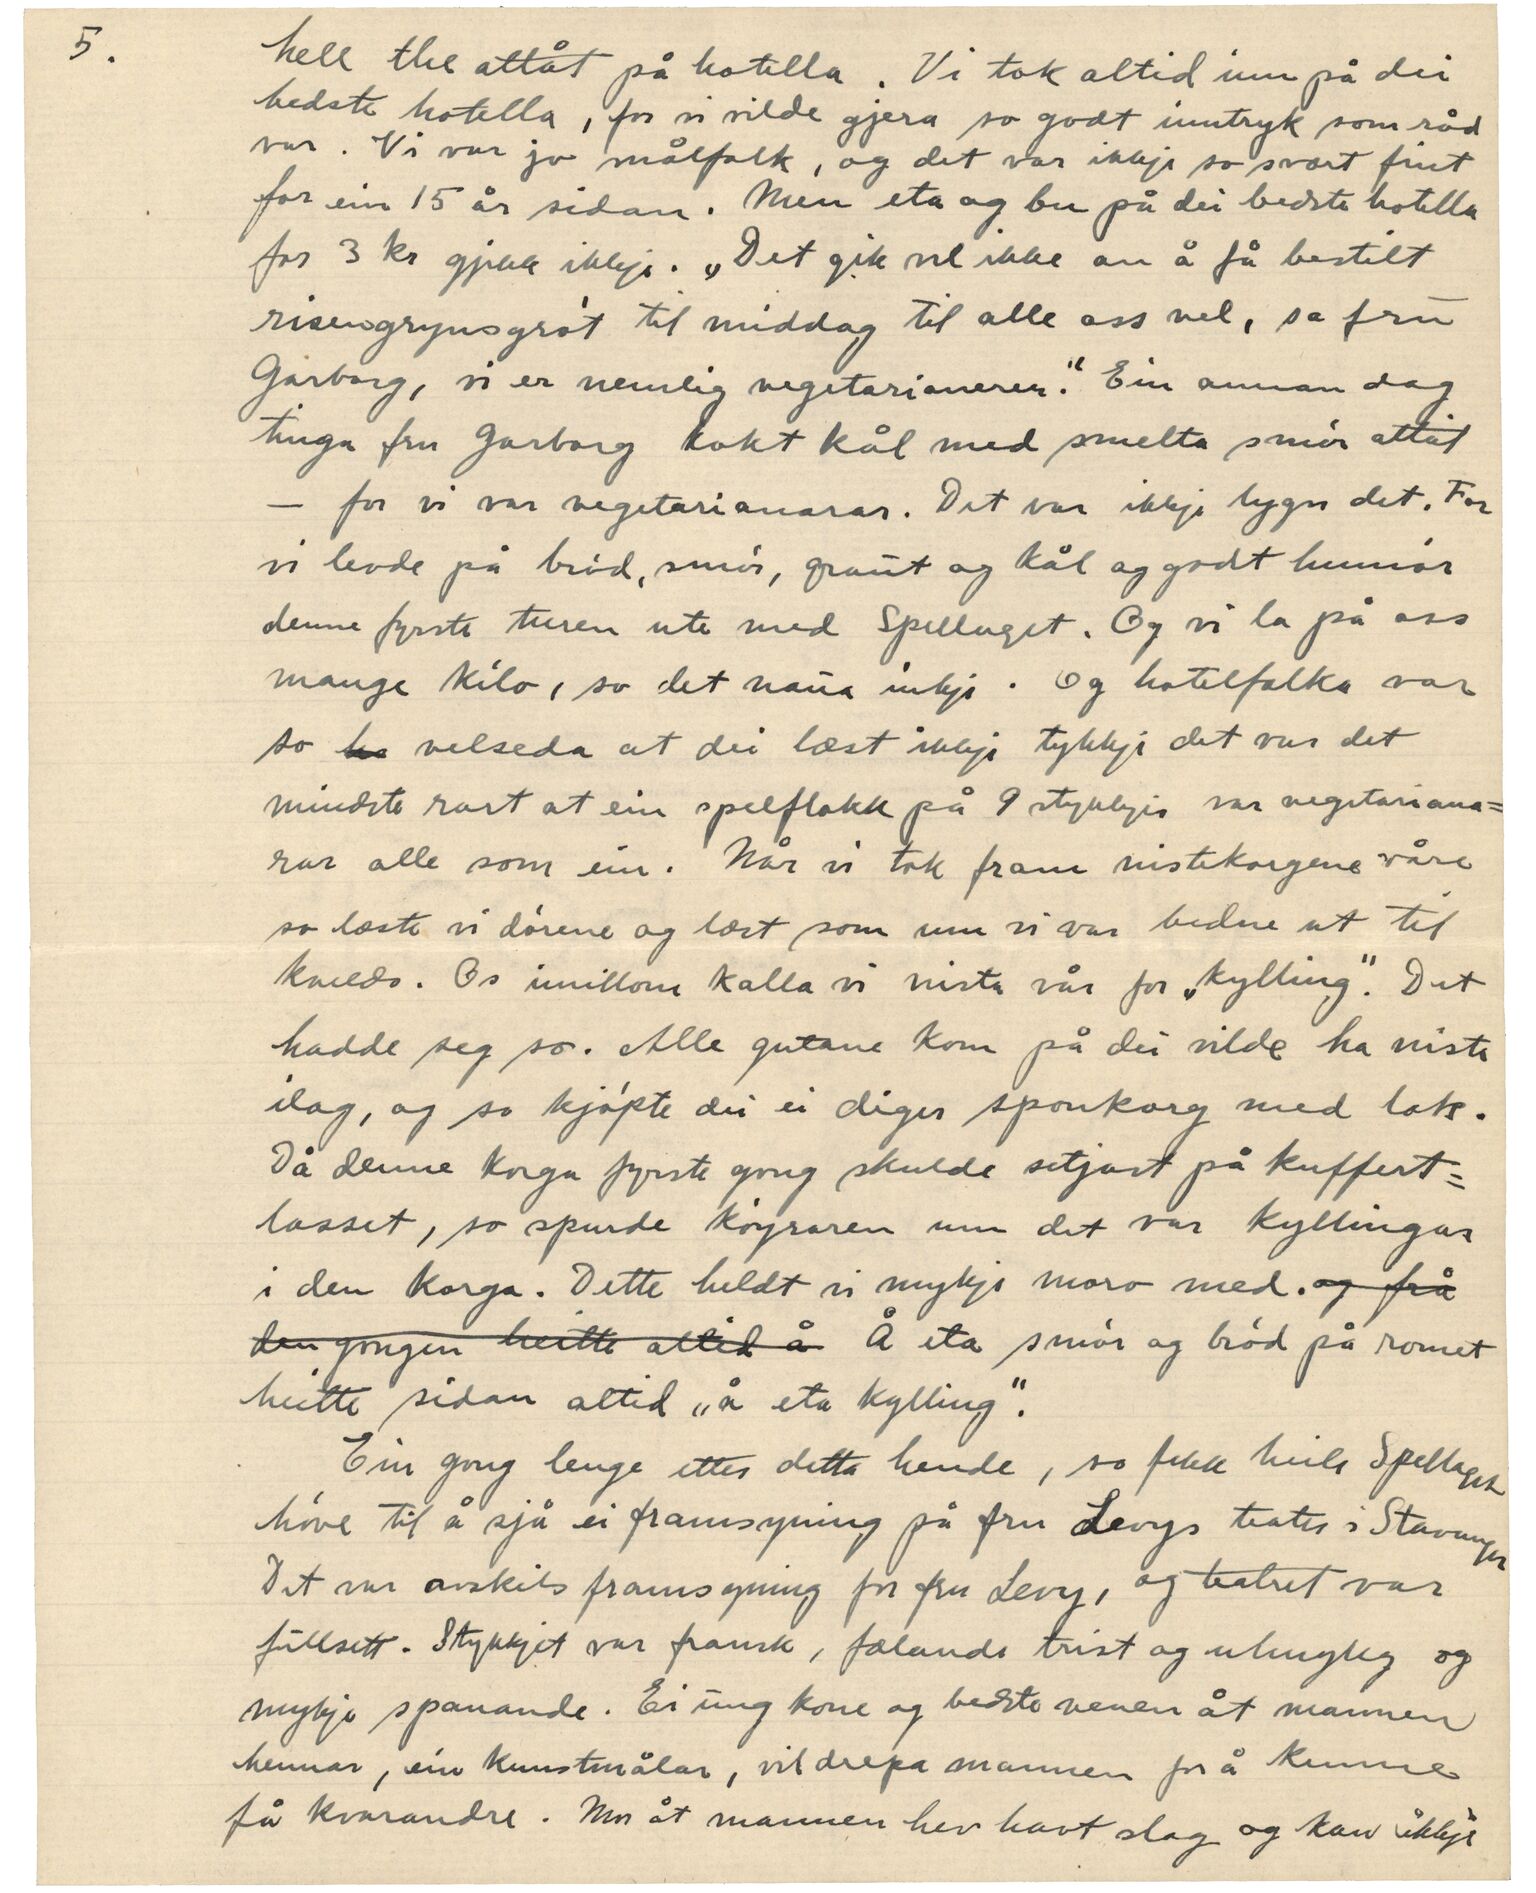 5.
hell the attåt på hotella. Vi tok altid inn på dei
bedste hotella, for vi vilde gjera so godt inntryk som råd
var. Vi var jo målfolk, og det var ikkje so svært fint
for ein 15 år sidan. Men eta og bu på dei bedste hotella
for 3 kr gjekk ikkje. „Det gik vel ikke an å få bestilt
risengrynsgrøt til middag til alle oss vel, sa fru
Garborg, vi er nemlig vegetarianerer." Ein annan dag
tinga fru Garborg kokt kål med smelta smør attåt
— for vi var vegetarianarar. Det var ikkje lygn det. For
vi levde på brød, smør, graut og kål og godt humør
denne fyrste turen ute med Spellaget. Og vi la på oss
mange kilo, so det naua inkje. Og hotelfolka var
so ha velseda at dei læst ikkje tykkje det var det
mindste rart at ein spelflokk på 9 stykkjer var vegetariana=
rar alle som ein. Når vi tok fram nistekorgene våre
so læste vi dørene og læst som um vi var bedne ut til
kvelds. Os imillom kalla vi nista vår for „kylling". Det
hadde seg so. Alle gutane kom på dei vilde ha niste
ilag, og so kjøpte dei ei diger sponkorg med lok.
Då denne korga fyrste gong skulde setjast på kuffert=
lasset, so spurde køyraren um det var kyllingar
i den korga. Dette heldt vi mykje moro med. og frå
den gongen heitte altid å Å eta smør og brød på romet
heitte sidan altid „å eta kylling".
Ein gong lenge etter detta hende, so fekk heile Spellaget
høve til å sjå ei framsyning på fru Levys teater i Stavanger
Det var avskilsframsyning for fru Levy, og teatret var
fullsett. Stykkjet var fransk, fælande trist og uhugleg og
mykje spanande. Ei ung kone og bedste venen åt mannen
hennar, ein kunstmålar, vil drepa mannen for å kunne
få kvarandre. Mor åt mannen hev havt slag og kan ikkje